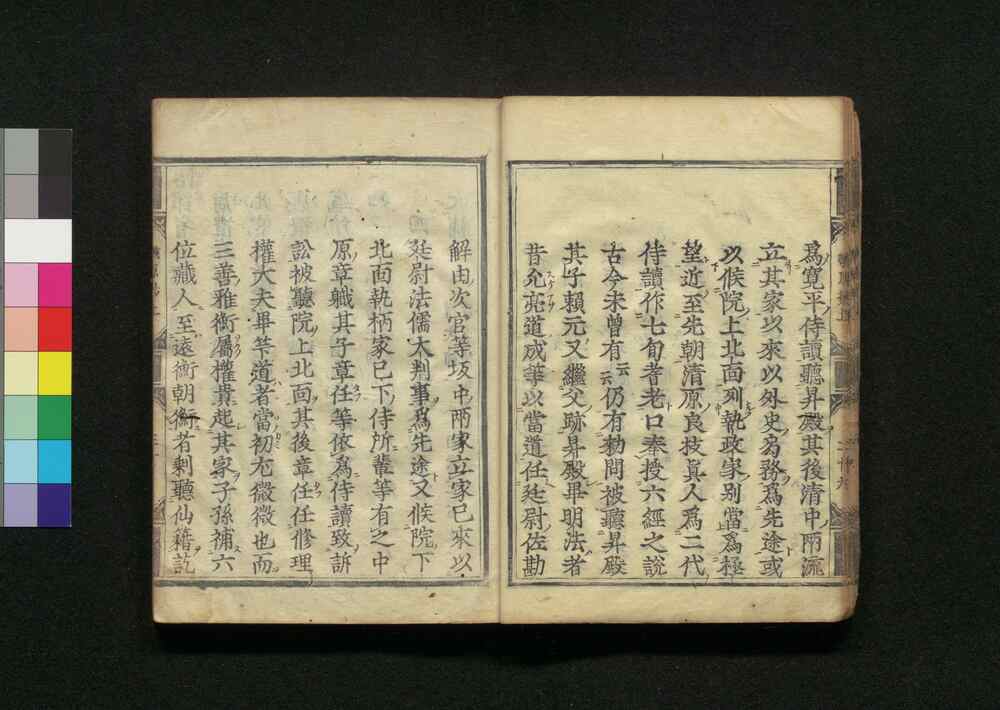 爲寛平侍讀聽昇殿其後清中兩流
立其家以來以外史爲務爲先途或
以候院上北面列執政家別當爲極
望近至先朝清原良枝眞人爲二代
侍讀作七旬者老口奉授六經之説
古今未曽有云云仍有勅問被聽昇殿
其子賴元又繼父跡昇殿畢明法者
昔允亮道成等以當道任廷尉佐勘
解由次官等坂中兩家立家已來以
廷尉法儒大判事爲先途又候院下
北面執柄家已下侍所軰等有之中
原章職其子章任等依爲侍讀致訴
訟被聽院上北面其後章任任修理
權大夫畢筭道者當初尤微微也而
三善雅衡屬權貴起其家子孫補六
位藏人至遠衡朝衡者剰聽仙籍訖